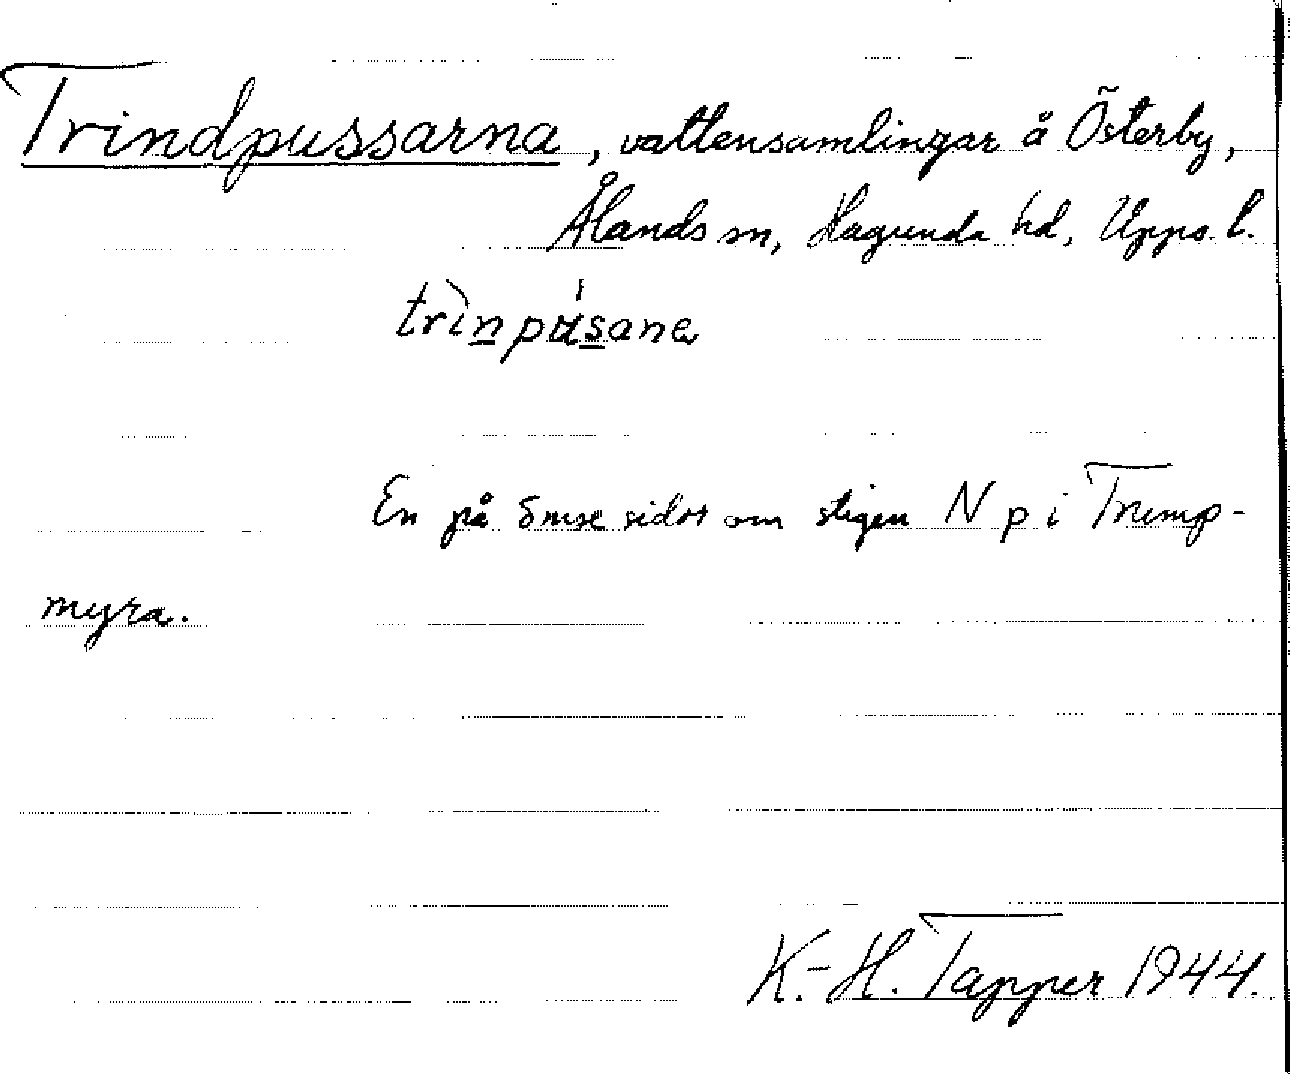 Trindpussarna, vattensamlingar å Österby,
Ålands sn, Hagunda hd, Upps. l.
trìnpúsana
En på ömse sidor om stigen N p i Trump-
myra.
K.-H. Tapper 1944.